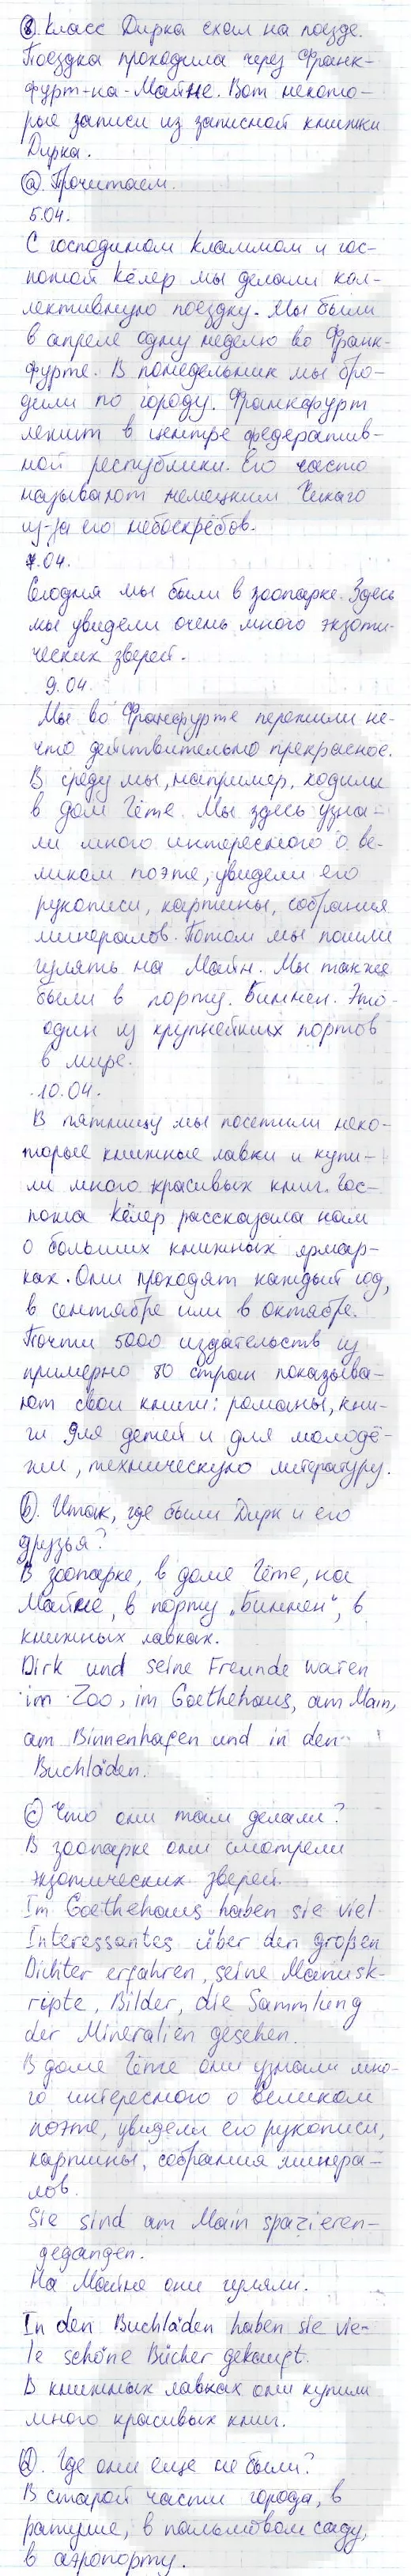 8. Класс Дирка ехал на поезде.
Поездка проходила через Франк-
фурт-на-Майне. Вот некото-
рые записи из записной книжки
Дирка.
а. Прочитаем.
5.04.
С господином Кламмом и гос-
пожой Кёлер мы делали кол-
лективную поездку. Мы были
в апреле одну неделю во Франк-
фурте. В понедельник мы бро-
дили по городу. Франкфурт
лежит в центре федератив-
ной республики. Его часто
называют немецким Чикаго
из-за его небоскрёбов.
7.04.
Сегодня мы были в зоопарке. Здесь
мы увидели очень много экзоти-
ческих зверей.
9.04.
Мы во Франкфурте пережили не-
что действительно прекрасное.
В среду мы, например, ходили
в дом Гёте. Мы здесь узна-
ли много интересного о ве-
ликом поэте, увидели его
рукописи, картины, собрания
минералов. Потом мы пошли
гулять на Майн. Мы также
были в порту Биннен. Это-
один из крупнейших портов
в мире.
10.04.
В пятницу мы посетили неко-
торые книжные лавки и купи-
ли много красивых книг. Гос-
пожа Кёлер рассказала нам
о больших книжных ярмар-
ках. Они проходят каждый год,
в сентябре или в октябре.
Почти 5000 издательств из
примерно 80 стран показыва-
ют свои книги: романы, кни-
ги для детей и для молодё-
жи, техническую литературу.
b. Итак, где были Дирк и его
друзья?
В зоопарке, в доме Гёте, на
Майне, в порту „Биннен“, в
книжных лавках.
Dirk und seine Freunde waren
im Zoo, im Goethehaus, am Main,
am Binnenhafen und in den
Buchläden.
c. Что они там делали?
В зоопарке они смотрели
экзотических зверей.
Im Goethehaus haben sie viel
Interessantes über den großen
Dichter erfahren, seine Manusk-
ripte, Bilder, die Sammlung
der Mineralien gesehen.
В доме Гёте они узнали мно-
го интересного о великом
поэте, увидели его рукописи,
картины, собрания минера-
лов.
Sie sind am Main spazieren-
gegangen.
На Майне они гуляли.
In den Buchläden haben sie vie-
le schöne Bücher gekauft.
В книжных лавках они купили
много красивых книг.
d. Где они еще не были?
В старой части города, в
ратуше, в пальмовом саду,
в аэропорту.